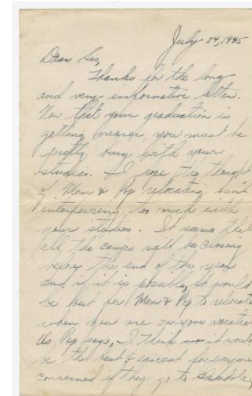 July 24, 1945
Dear Sis,
Thanks for the long
and very informative letter.
Now that your graduation is
getting nearer, you must be
pretty busy with your
studies. I hope the thought
of Mom & Pop relocating isn't
interfering too much with
your studies. It seems that
all the camps will be closing
near the end of the year
and if it is possible, it would
be best for Mom & Pop to relocate
when you are on your vacation.
As Pop says, I think would
be the best & easiest for everyone
concerned if they go to